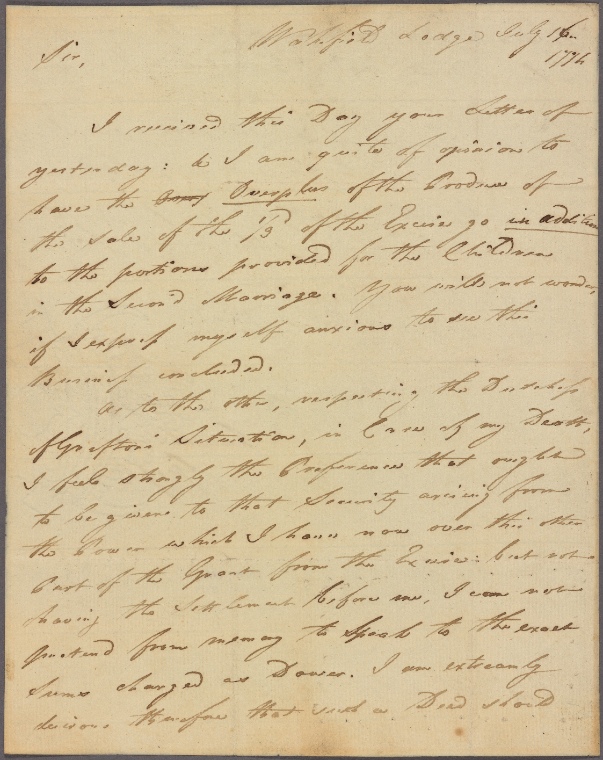 Wakefield Lodge July 16th
1774
Sir,
I received this Day your Letter of
yesterday: & I am quite of opinion to
have the Overplus of the Produce of
the sale of the 1/3 of the Excise go in addition
to the portions provided for the Children
in the Second Marriage. You will not wonder,
if I express myself anxious to see this
Business concluded.
As to the other, respecting the Dutchess
of Grafton's Situation, in Case of my Death,
I feel strongly the Preference that ought
to be given to that Security arising from
the Power which I have now over this other
Part of the Grant from the Excise: but not
having the Settlement before me, I can not
pretend from memory to speak to the exact
Sums charged as Dower. I am extreamly
desirous therefore that such a Deed should